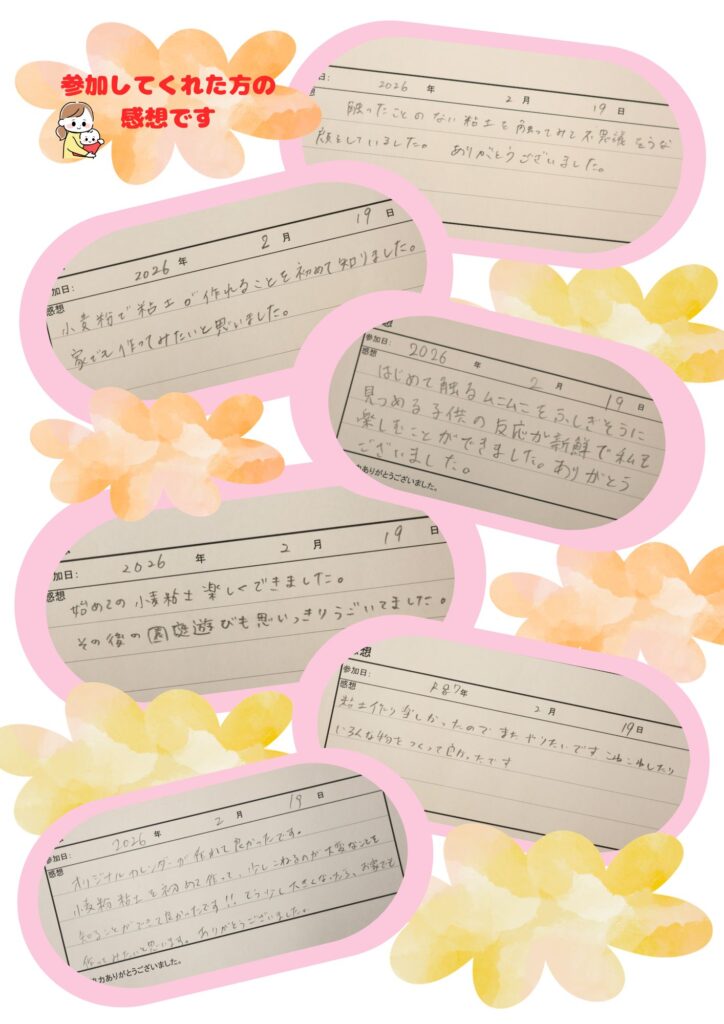 参加してくれた方の
感想です
日: 2026 年 2 月 19 日
触ったことのない粘土を触ってみて不思議そうな
顔をしていました。 ありがとうございました。
加日: 2026 年 2 月 19 日
感想
小麦粉で粘土が作れることを初めて知りました。
家でも作ってみたいと思いました。
参加日: 2026 年 2 月 19 日
感想
はじめて触るムニムニをふしぎそうに
見つめる子供の反応が新鮮で私も
楽しむことができました。ありがとう
ございました。
力ありがとうございました。
加日: 2026 年 2 月 19 日
感想
始めての小麦粘土楽しくできました。
その後の園庭遊びも思いっきりうごいてました。
感想
参加日: 年 2 月 19日
感想
粘土作り楽しかったので またやりたいです こねこねしたり
いろんな物をつくって良かったです
参加日: 2026 年 2 月 19 日
感想
オリジナルカレンダーが作れて良かったです。
小麦粉粘土を初めて作って、少しこねるのが大変なことも
知ることができて良かったです!! もう少し大きくなったら、お家でも
作ってみたいと思います。ありがとうございました。
力ありがとうございました。